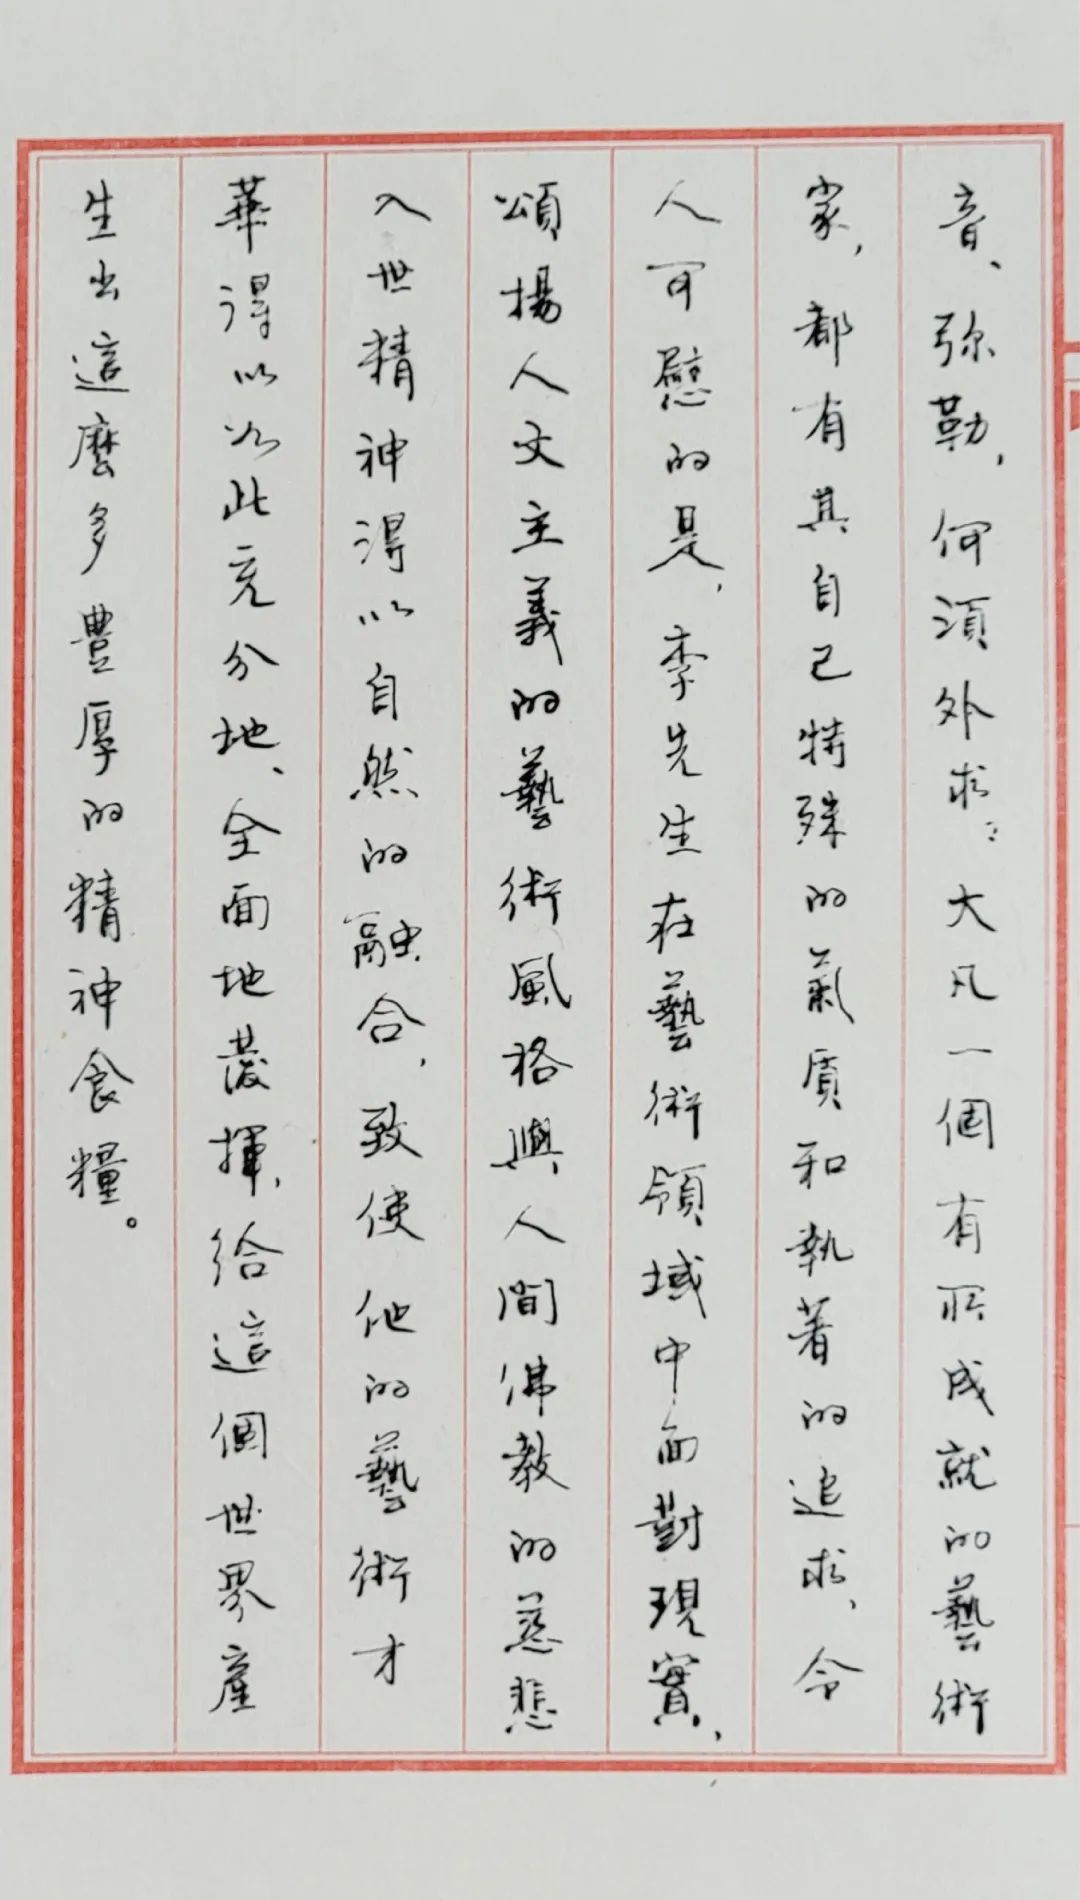 音、弥勒，何須外求？大凡一個有所成就的藝術
家，都有其自己特殊的氣質和執著的追求，令
人可慰的是，李先生在藝術領域中面對現實，
頌揚人文主義的藝術風格與人間佛教的慈悲
入世精神得以自然的融合，致使他的藝術才
華得以如此充分地、全面地發揮，給這個世界產
生出這麼多豊厚的精神食糧。